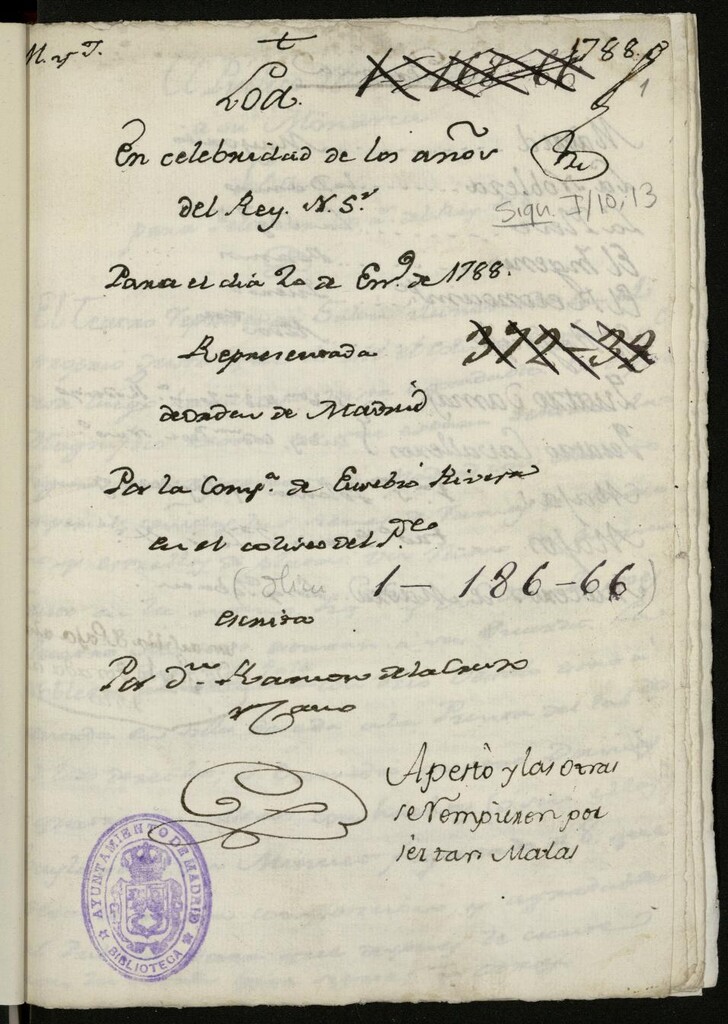 M. y T.
1788.
1
Loa.
En celebridad de los años
del Rey. N. S.r
Sign. I/10,13
Para el dia 20 de En.o de 1788.
Representada
372-32
de orden de Madrid
Por la Comp.a de Eusebio Rivera
en el coliseo del P.e
1- 186-66
escrita
Por D.n Ramon de la Cruz
y Cano
Apestò y las otras
por
ser tan Malas
AYUNTAMIENTO DE MADRID
BIBLIOTECA